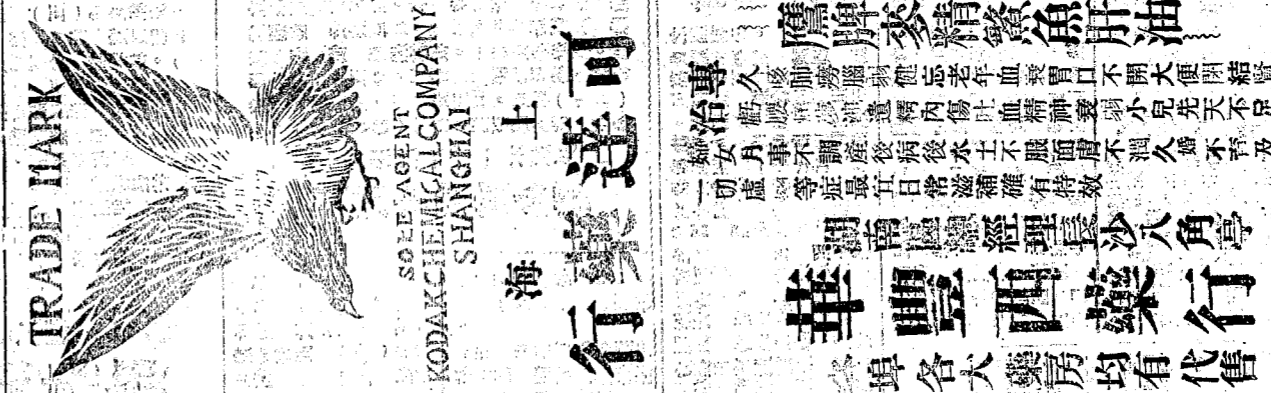 TRADE MARK
SOLE AGENT
KODAK CHEMICAL COMPANY
SHANGHAI
上海
可達藥行
鷹牌麥精鰵魚肝油
專治
久咳肺癆腦弱健忘老年血衰胃口不開大便閉結腎
虧腰遺精內傷吐血精神衰弱小兒先天不足
婦女月事不調產後病後水土不服面膚不潤久婚不育及
一切虛等症最宜日常滋補確有特效
湖南經理長沙八角亭
華豐西藥行
埠各大藥房均有代售